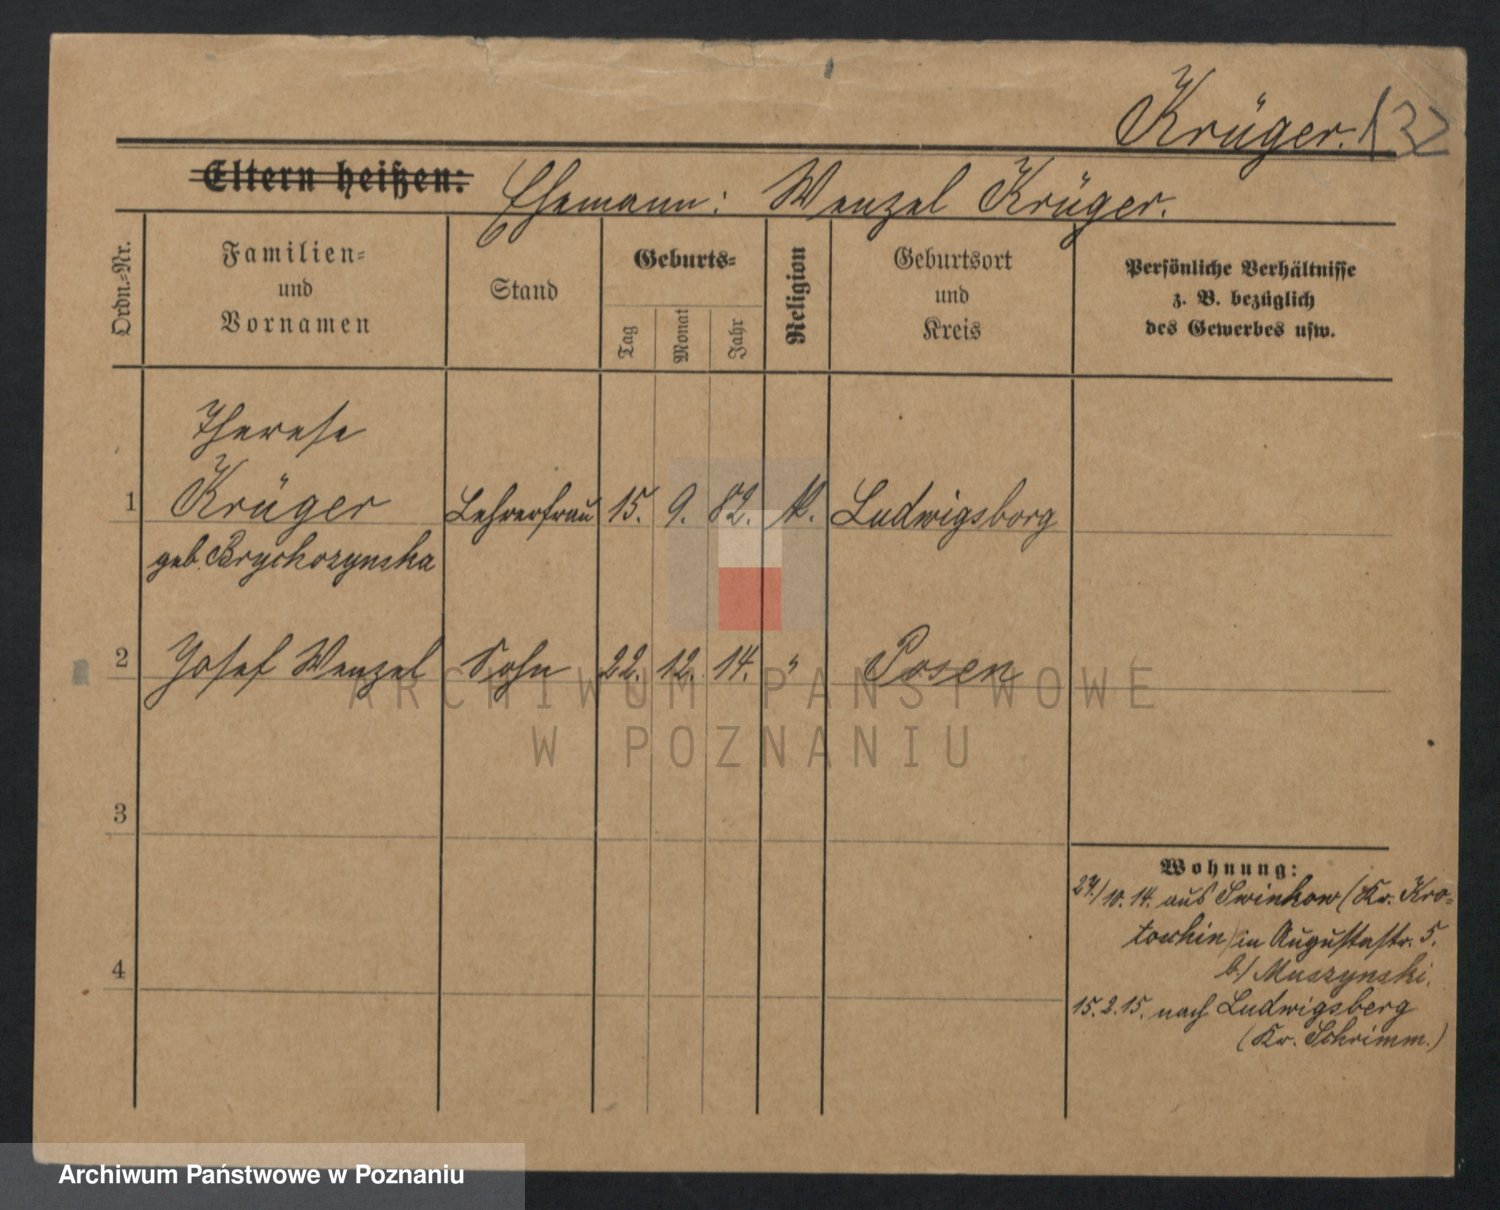 Krüger. 132
Eltern heißen: Ehemann: Wenzel Krüger.
Ordn.-Nr.
Familien-
und
Vornamen
Stand
Geburts-
Tag
Monat
Jahr
Religion
Geburtsort
und
Kreis
Persönliche Verhältnisse
z. B. bezüglich
des Gewerbes usw.
Therese
1 Krüger Lehrerfrau 15. 9. 82. k. Ludwigsborg
geb. Brychczynska
2 Josef Wenzel Sohn 22. 12. 14. " Posen
ARCHIWUM PAŃSTWOWE
W POZNANIU
3
Wohnung:
27./10. 14. aus Swinkow (Kr. Kro-
toschin) in Augustastr. 5.
b/ Muszynski.
15. 2. 15. nach Ludwigsberg
(Kr. Schrimm.)
4
Archiwum Państwowe w Poznaniu